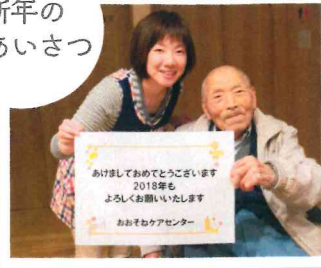 新年の
あいさつ
あけましておめでとうございます
2018年も
よろしくお願いいたします
おおそねケアセンター